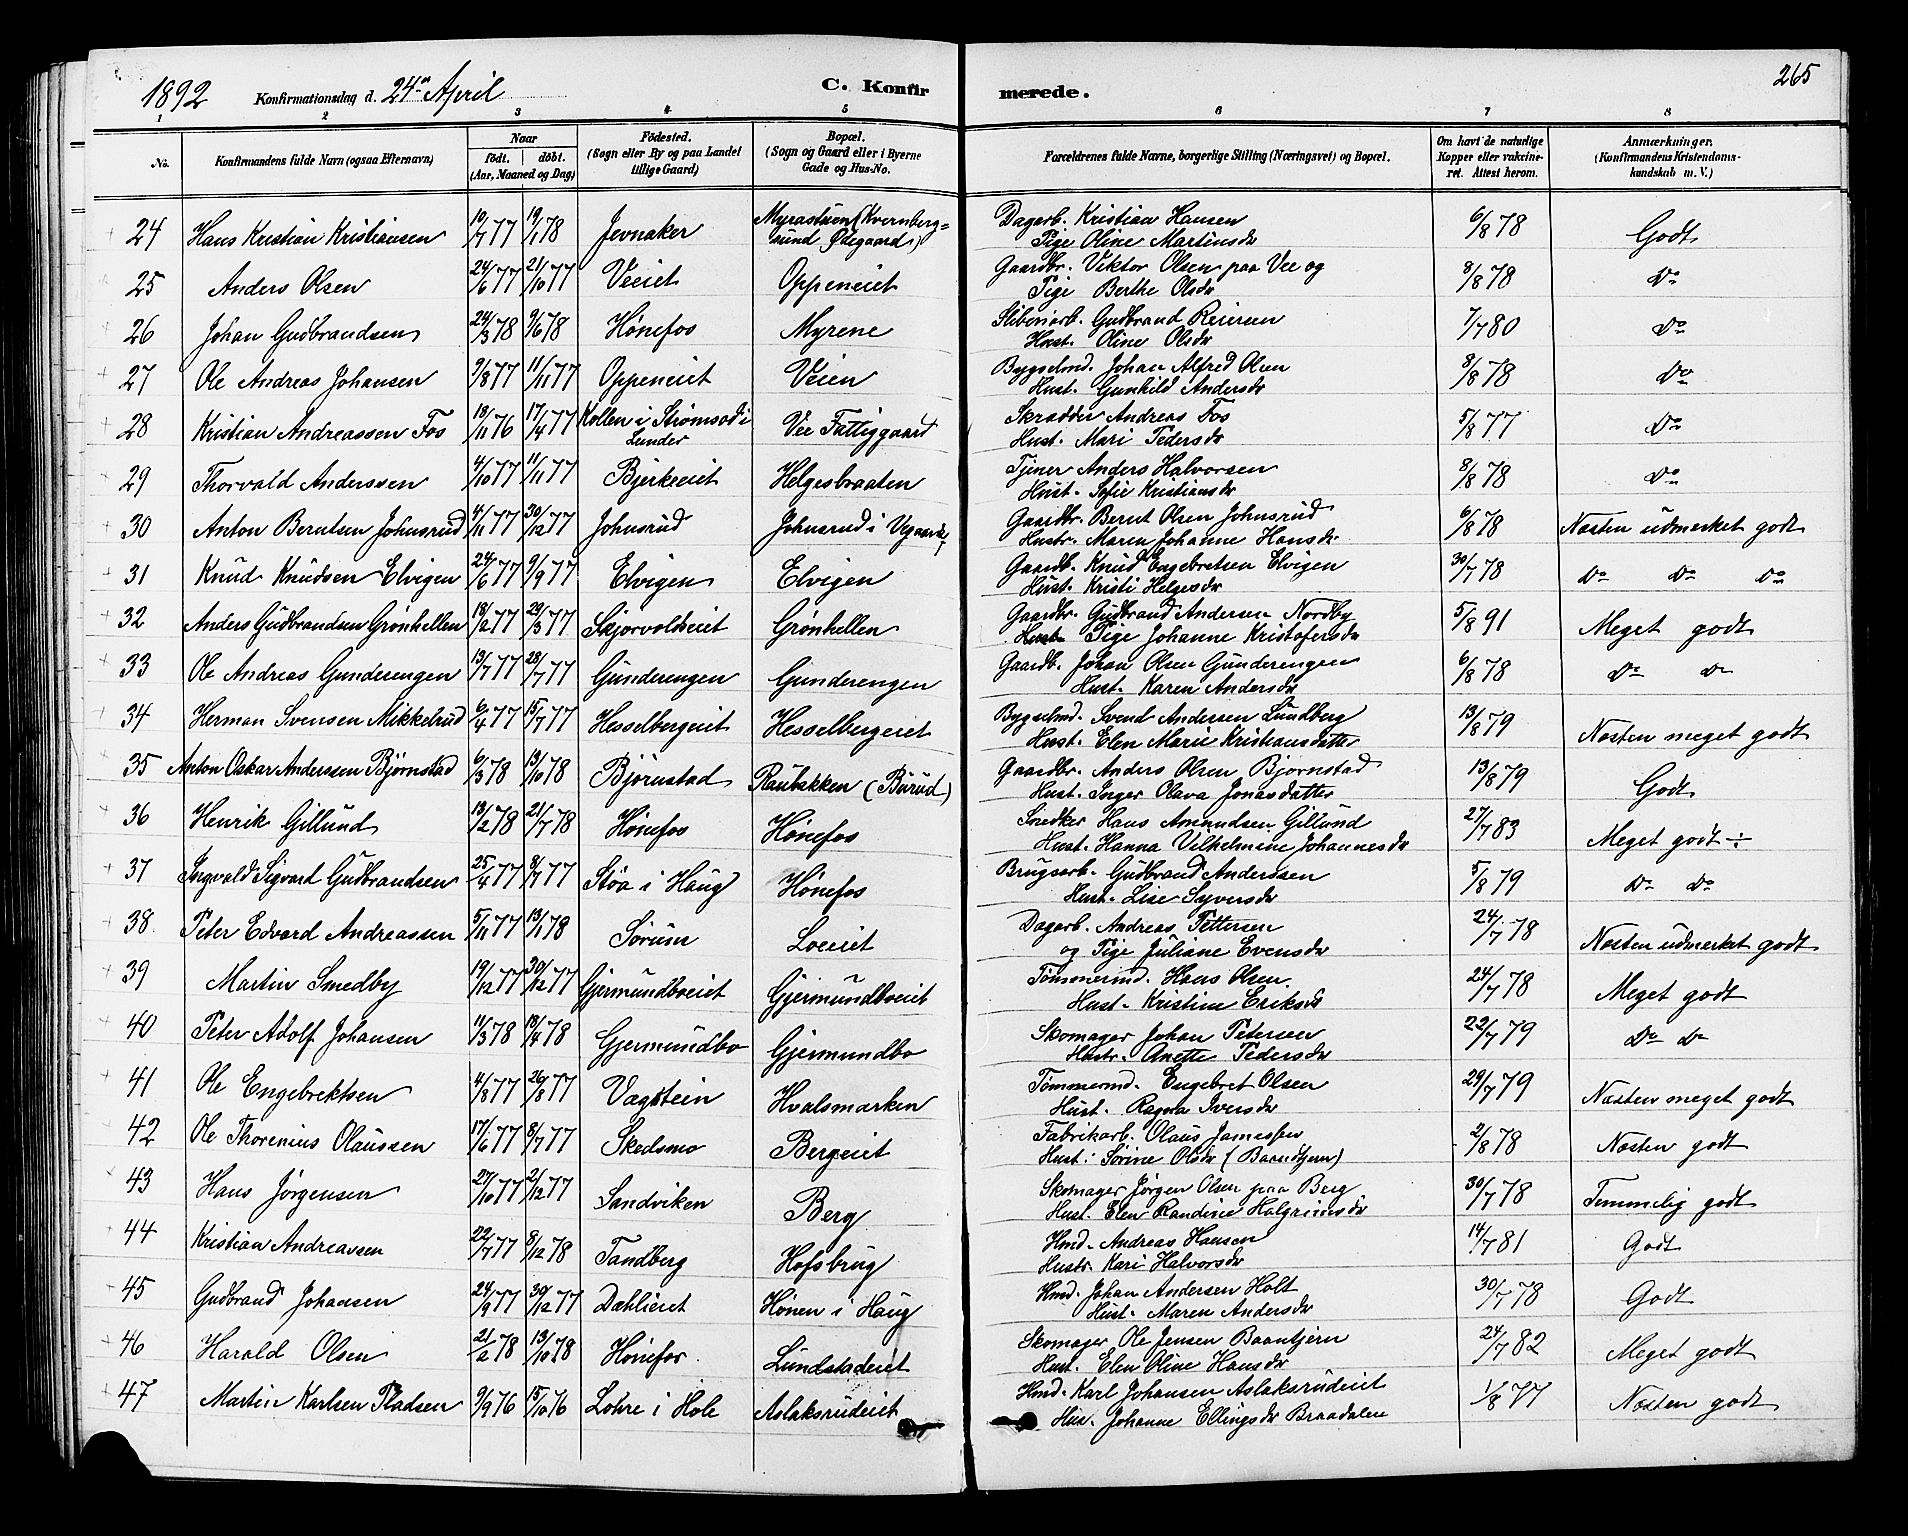 1892 Konfirmationsdag d. 24de April C. Konfirmerede. 265
1 2 3 4 5 6 7 8
No. Konfirmandens fulde Navn (ogsaa Efternavn) Naar födt. döbt. (Aar, Maaned og Dag) Födested. (Sogn eller By og paa Landet tillige Gaard) Bopæl. (Sogn og Gaard eller i Byerne Gade og Hus-No. Forældrenes fulde Navne, borgerlige Stilling (Næringsvei) og Bopæl. Om havt de naturlige Kopper eller vakcineret. Attest herom. Anmærkninger. (Konfirmandens Kristendomskundskab m. V.)
24 Hans Kristian Kristiansen 10/7 77 19/1 78 Jevnaker Myrastuen (Kvernbergsund Ødegaard) Dagarb. Kristian Hansen Pige Oline Martinsdr 6/8 78 Godt
25 Anders Olsen 24/6 77 21/10 77 Veeiet Oppeneiet Gaardbr. Viktor Olsen paa Vee og Pige Berthe Olsdr 8/8 78 Do
26 Johan Gudbrandsen 24/3 78 9/6 78 Hønefos Myrene Sliberiarb. Gudbrand Reiersen Hust. Oline Olsdr 7/7 80 Do
27 Ole Andreas Johansen 9/8 77 11/11 77 Oppeneiet Veien Bygselmd. Johan Alfred Olsen Hust. Gunhild Andersdr 8/8 78 Do
28 Kristian Andreassen Fos 18/11 76 17/4 77 Kollen i Strømsod i Lunder Vee Fattiggaard Skrædder Andreas Fos Hust. Mari Pedersdr 5/8 77 Do
29 Thorvald Anderssen 4/10 77 11/11 77 Bjerkeeiet Helgesbraaten Tjener Anders Halvorsen Hust. Sofie Kristiansdr 8/8 78 Do
30 Anton Berntsen Johnsrud 4/11 77 30/12 77 Johnsrud Johnsrud i Vgaards. Gaardbr. Bernt Olsen Johnsrud Hustr. Maren Johanne Hansdr. 6/8 78 Næsten udmerket godt
31 Knud Knudsen Elvigen 24/6 77 9/9 77 Elvigen Elvigen Gaardb. Knud Engebretsen Elvigen Hust. Kristi Helgesdr 30/7 78 Do Do Do
32 Anders Gudbrandsen Grønhellen 18/2 77 29/3 77 Skjorvoldseiet Grønhellen Gaardbr. Gudbrand Andersen Nordby Hust Pige Johanne Kristofersdr 5/8 91 Meget godt
33 Ole Andreas Gunderengen 13/7 77 28/7 77 Gunderengen Gunderengen Gaardb. Johan Olsen Gunderengen Hust. Karen Andersdr 6/8 78 Do Do
34 Herman Svensen Mikkelrud 6/4 77 15/7 77 Hesselbergeiet Hesselbergeiet Bygselmd. Svend Andersen Lundberg Hust. Elen Marie Kristiansdatter 13/8 79 Næsten meget godt
35 Anton Oskar Anderssen Bjørnstad 6/3 78 13/10 78 Bjørnstad Raubakken (Burud) Gaardbr. Anders Olsen Bjørnstad Hust. Inger Olava Jonasdatter 13/8 79 Godt
36 Henrik Gillund 13/2 78 21/7 78 Hønefos Hønefos Snedker Hans Amundsen Gillund Hust. Hanna Vilhelmine Johannesdr 27/7 83 Meget godt ÷
37 Ingvald Sigvart Gudbrandsen 25/4 77 8/7 77 Støa i Haug Hønefos Brugsarb. Gudbrand Anderssen Hust. Lise Syversdr 5/8 79 Do Do
38. Peter Edvard Andreassen 5/11 77 13/1 78 Sørum Loeiet Dagarb. Andreas Pettersen og Pige Juliane Evensdr 24/7 78 Næsten udmerket godt
39 Martin Smedby 19/12 77 30/12 77 Gjermundboeiet Gjermundboeiet Tømmermd. Hans Olsen Hust. Kristine Eriksdr 24/7 78 Meget godt
40 Peter Adolf Johansen 11/3 78 18/4 78 Gjermundbo Gjermundbo Skomager Johan Petersen Hustr. Anette Pedersdr 22/7 79 Do Do
41 Ole Engebrektsen 4/8 77 26/8 77 Vagstein Hvalsmarken Tømmermd. Engebret Olsen Hust. Ragna Iversdr 29/7 79 Næsten meget godt
42 Ole Thorenius Olaussen 17/6 77 8/7 77 Skedsmo Bergeiet Fabrikarb. Olaus Jamessen Hust: Sørine Olsdr (Baantjern) 2/8 78 Næsten godt
43 Hans Jørgensen 27/10 77 2/12 77 Sandviken Berg Skomager Jørgen Olsen paa Berg Hust. Elen Randine Halgrimsdr 30/7 78 Temmelig godt
44 Kristian Andreassen 22/7 77 8/12 78 Tandberg Hofsbrug Hmd. Andreas Hansen Hustr. Kari Halvorsdr 14/7 81 Godt
45 Gudbrand Johansen 24/9 77 30/12 77 Dahlieiet Hønen i Haug Hmd. Johan Andersen Holt Hust. Maren Andersdr 30/7 78 Godt
46 Harald Olsen 21/2 78 13/10 78 Hønefos. Lundstadeiet Skomager Ole Jensen Baantjern Hust. Elen Oline Hansdr 24/7 82 Meget godt
47 Martin Karlsen Pladsen 9/9 76 15/10 76 Løhre i Hole Aslaksrudeiet Hmd. Karl Johansen Aslaksrudeiet Hus. Johanne Ellingsdr Braadalen 1/8 77 Næsten godt